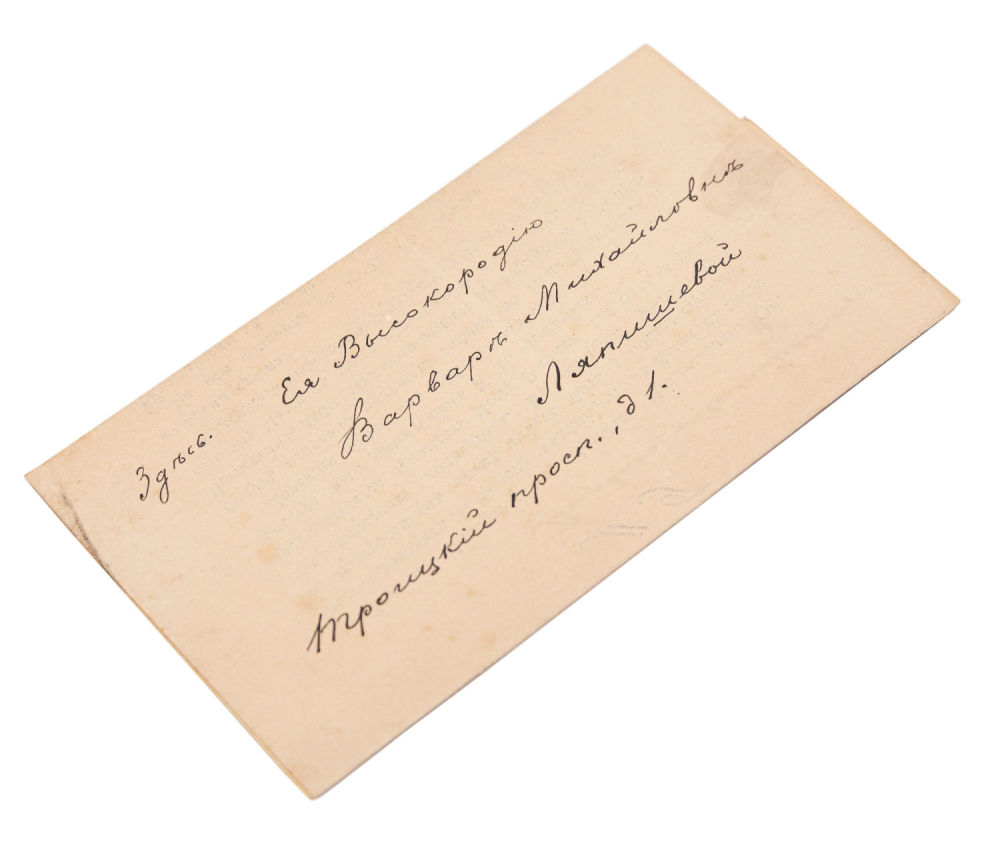 Здѣсь.
Ея Высокородію
Варварѣ Михайловнѣ
Ляпишевой
Троицкій просп., д 1.